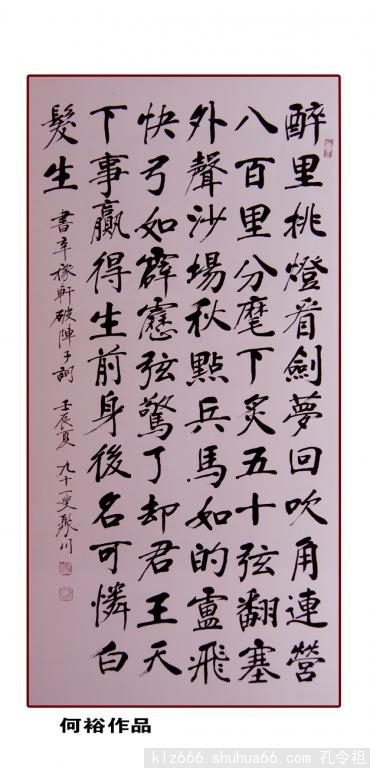 醉里挑燈看劍夢回吹角連營
八百里分麾下炙五十弦翻塞
外聲沙場秋點兵馬如的盧飛
快弓如霹靂弦驚了却君王天
下事贏得生前身後名可憐白
髮生 書辛稼軒破陣子詞 壬辰夏 九十一叟川
何裕作品
klz666.shuhua66.com 孔令祖